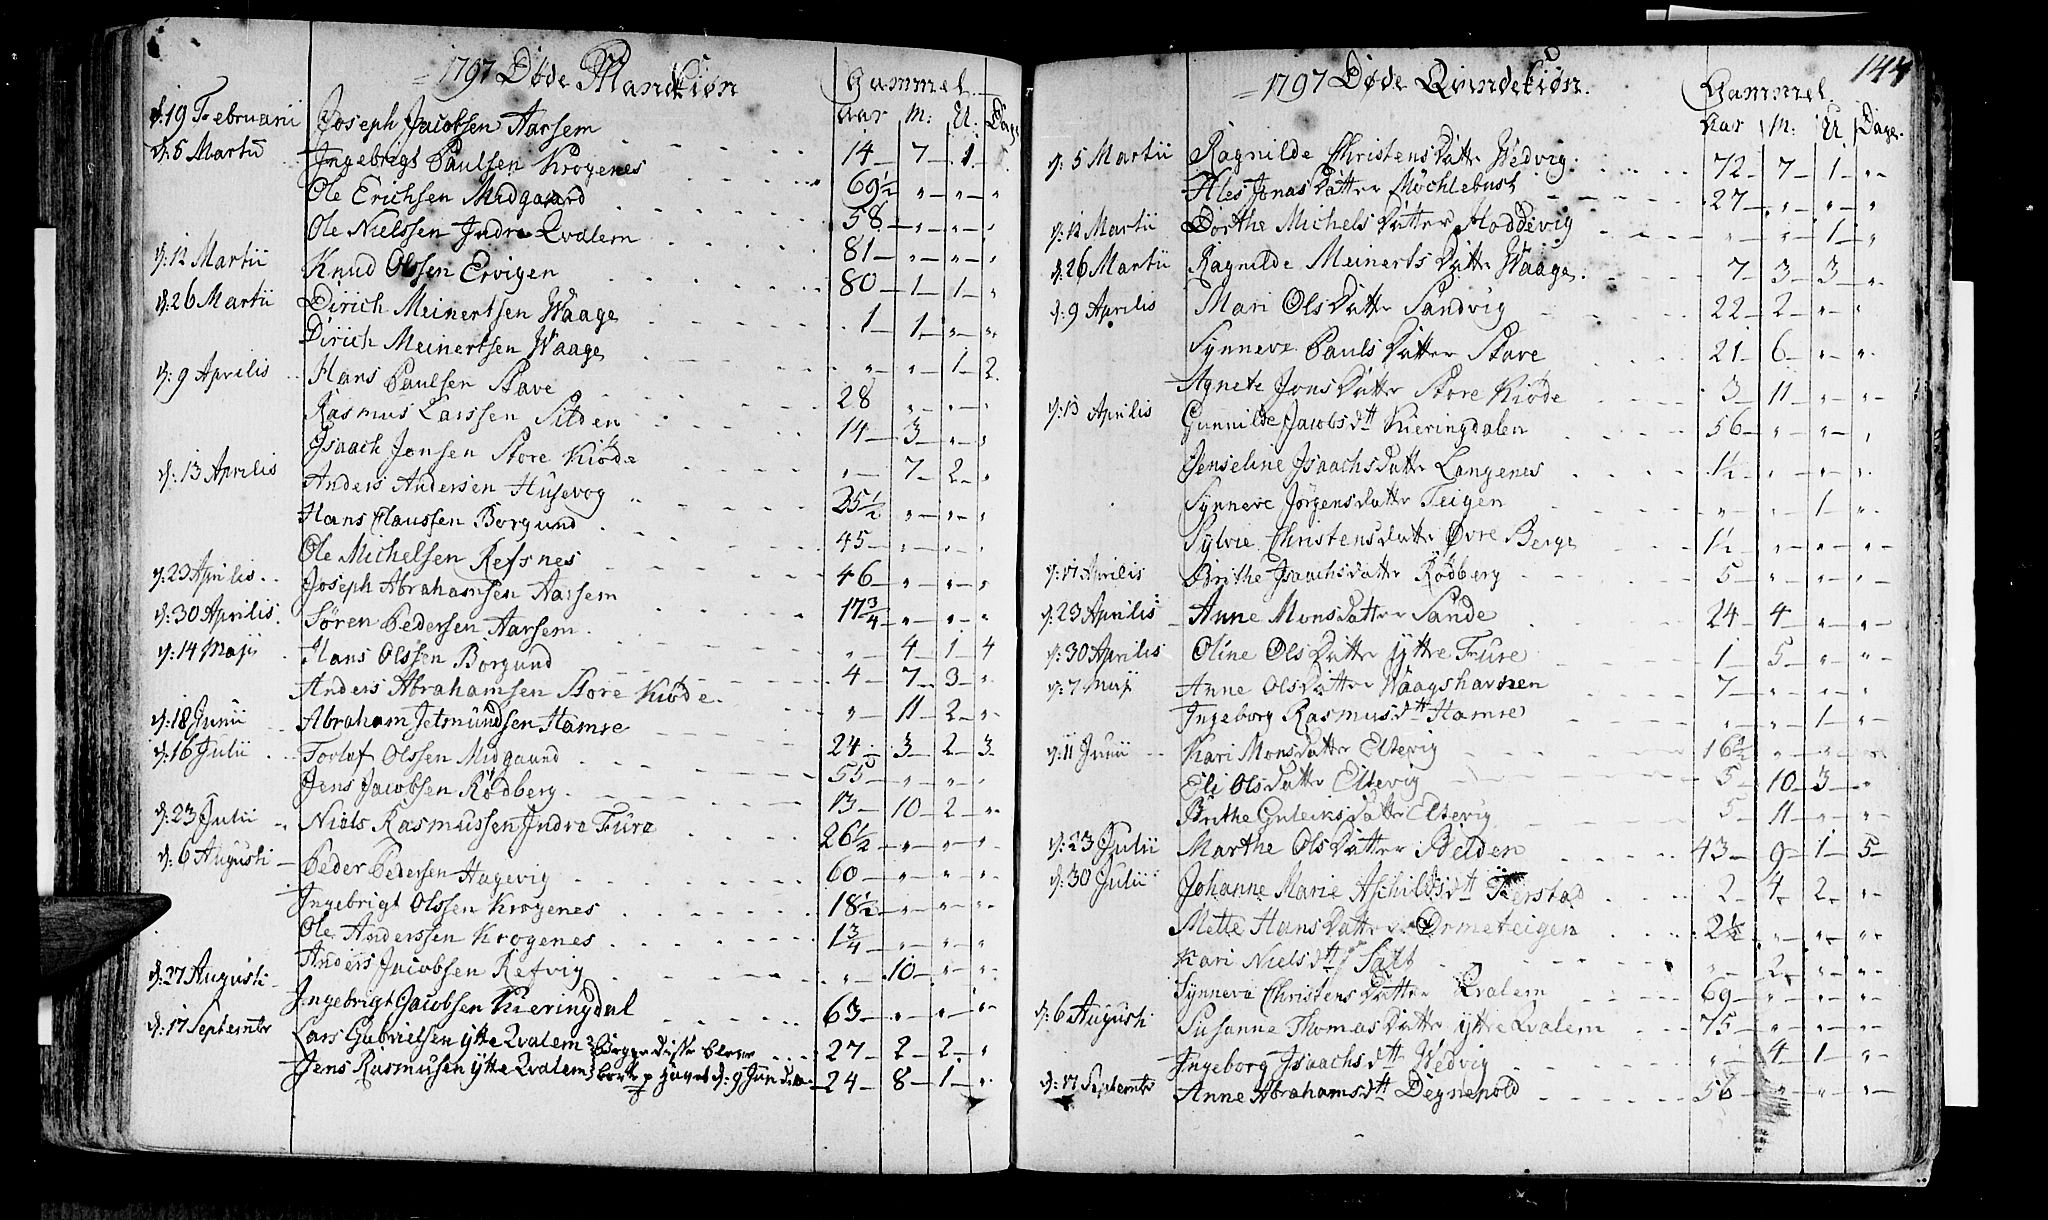 1797 Døde Mandkiøn
Gammel
Aar M: U. Dage
d: 19 Februarii Joseph Jacobsen Aarsem 14 7 1 "
d: 5 Martii Ingebrigt Paulsen Krogenes 69½ " " "
Ole Erichsen Midgaard 58 " " "
Ole Nielssen Indre Qvalem 81 " " "
d: 12 Martii Knud Olssen Ervigen 80 1 1 "
d: 26 Martii Dirich Meinertsen Waage 1 1 " "
Dirich Meinertsen Waage " " 1 2
d: 9 Aprilis Hans Paulsen Stave 28 " " "
Rasmus Larssen Silden 14 3 " "
Isaach Jonsen Store Kiøde " 7 2 "
d: 13 Aprilis Anders Andersen Husevog 25½ " " "
Hans Claussen Borgund 45 " " "
Ole Michelsen Refsnes 46 " " "
d: 23 Aprilis Joseph Abrahamsen Aarsem 17¾ " " "
d: 30 Aprilis Søren Pedersen Aarsem " 4 1 4
d: 14 Maji Hans Olssen Borgund 4 7 3 "
Anders Abrahamsen Store Kiøde " 11 2 "
d: 18 Junii Abraham Jetmundsen Hamre 24 3 2 3
d: 16 Julii Torlaf Olssen Midgaard 55 " " "
Jens Jacobsen Rödberg 13 10 2 "
d: 23 Julii Niels Rasmussen Indre Fure 26½ " " "
d: 6 Augusti Peder Pedersen Hagevig 60 " " "
Ingebrigt Olssen Krogenes 18½ " " "
Ole Anderssen Krogenes 1¾ " " "
Anders Jacobsen Refvig " 10 " "
d: 27 Augusti Ingebrigt Jacobsen Kieringdal 63 " " "
d: 17 Septembr Lars Gabrielsen ytte Qvalem Begge disse bleve 27 2 2 "
Jens Rasmusen ytte Qvalem borte p Havet d: 9 Jun 24 8 1 "
144
1797 Døde Qvindekiøn.
Gammel
Aar M: U Dage
d: 5 Martii Ragnilde Christens Datter Wedvig 72 7 1 "
Ales Jonas Datter Möchlebust 27 " " "
d: 12 Martii Dorthe Michels Datter Hoddevig " " 1 "
d: 26 Martii Ragnilde Meinerts Datter Waage 7 3 3 "
d: 9 Aprilis Mari Ols Datter Sandvig 22 2 " "
Synneve Pauls Datter Stave 21 6 " "
Agnete Jons Datter Store Kiøde 3 11 " "
d: 13 Aprilis Gunnilde Jacobs dtt Kieringdalen 56 " " "
Jenseline Isaachs datter Langenes 1½ " " "
Synneve Jörgens datter Teigen " " 1 "
Sylvie Christens datter Øvre Berge 1½ " " "
d: 17 Aprilis Brithe Isaachs datter Rödberg 5 " " "
d: 23 Aprilis Anne Mons datter Sande 24 4 " "
d: 30 Aprilis Oline Ols Datter ytre Fure 1 5 " "
d: 7 Maji Anne Ols Datter Waagshavnen 7 " " "
Ingeborg Rasmus dtt Hamre " " 1 "
d: 11 Junii Kari Mons datter Eltevig 16½ " " "
Eli Ols datter Eltevig 5 10 3 "
Brithe Guleiks datter Eltevig 5 11 " "
d: 23 Julii Marthe Ols Datter Belden 43 9 1 5
d: 30 Julii Johanne Marie Aschilds dtt 2 4 2 "
Mette Hans Datter Ormeteigen 2½ " " "
Kari Niels dtt Satt " 2 " "
Synneve Christens Datter Qvalem 69 " " "
d: 6 Augusti Susanne Thomas Datter ytre Qvalem 75 " " "
Ingeborg Isaachs dtt Wedvig " 4 1 "
d: 17 Septembr Anne Abrahams dtt Degnepold 56 " " "